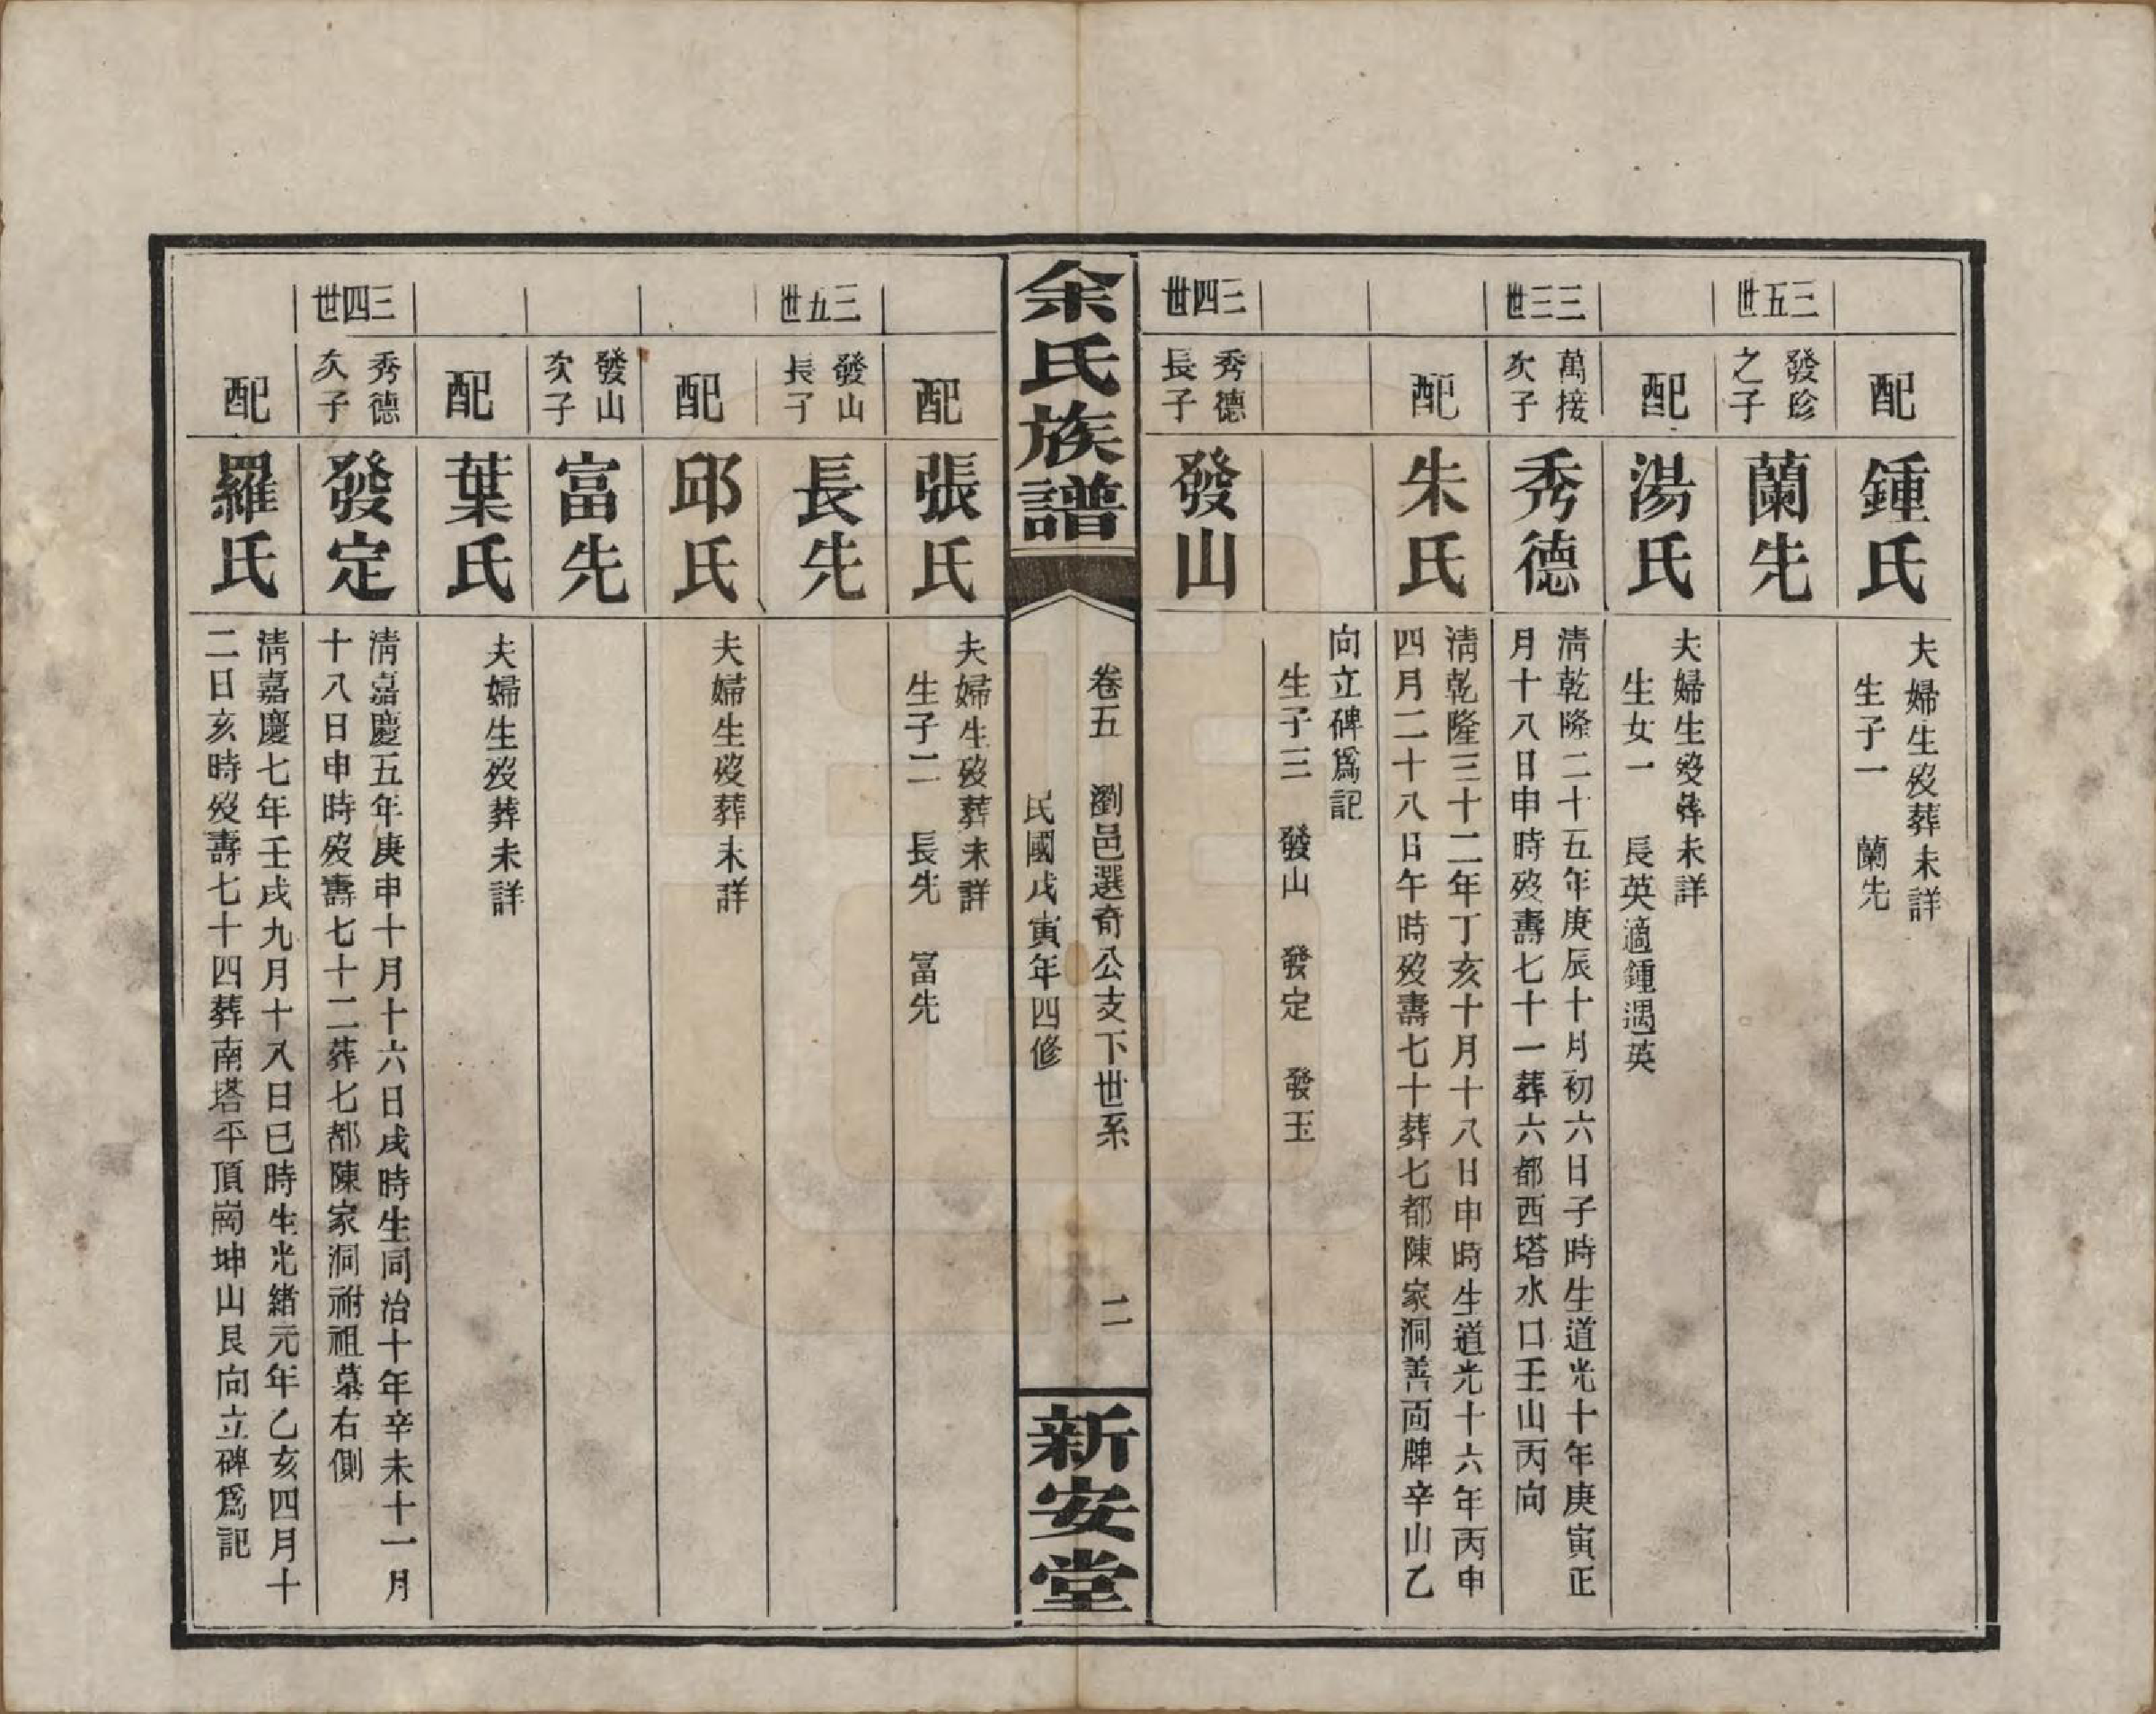 配
鍾氏
夫婦生歿葬未詳
生子一　蘭先
三五世
發珍
之子
蘭先
配
湯氏
夫婦生歿葬未詳
生女一　長英適鍾遇英
三三世
萬接
次子
秀德
清乾隆二十五年庚辰十月初六日子時生道光十年庚寅正
月十八日申時歿壽七十一葬六都西塔水口壬山丙向
配
朱氏
清乾隆三十二年丁亥十月十八日申時生道光十六年丙申
四月二十八日午時歿壽七十葬七都陳家洞善面牌辛山乙
向立碑爲記
生子三　發山　發定　發玉
三四世
秀德
長子
發山
余氏族譜
卷五　瀏邑選奇公支下世系　二
民國戊寅年四修
新安堂
配
張氏
夫婦生歿葬未詳
生子二　長先　富先
三五世
發山
長子
長先
配
邱氏
夫婦生歿葬未詳
發山
次子
富先
配
葉氏
夫婦生歿葬未詳
三四世
秀德
次子
發定
清嘉慶五年庚申十月十六日戌時生同治十年辛未十一月
十八日申時歿壽七十二葬七都陳家洞祔祖墓右側
配
羅氏
清嘉慶七年壬戌九月十八日巳時生光緒元年乙亥四月十
二日亥時歿壽七十四葬南塔平頂崗坤山艮向立碑爲記